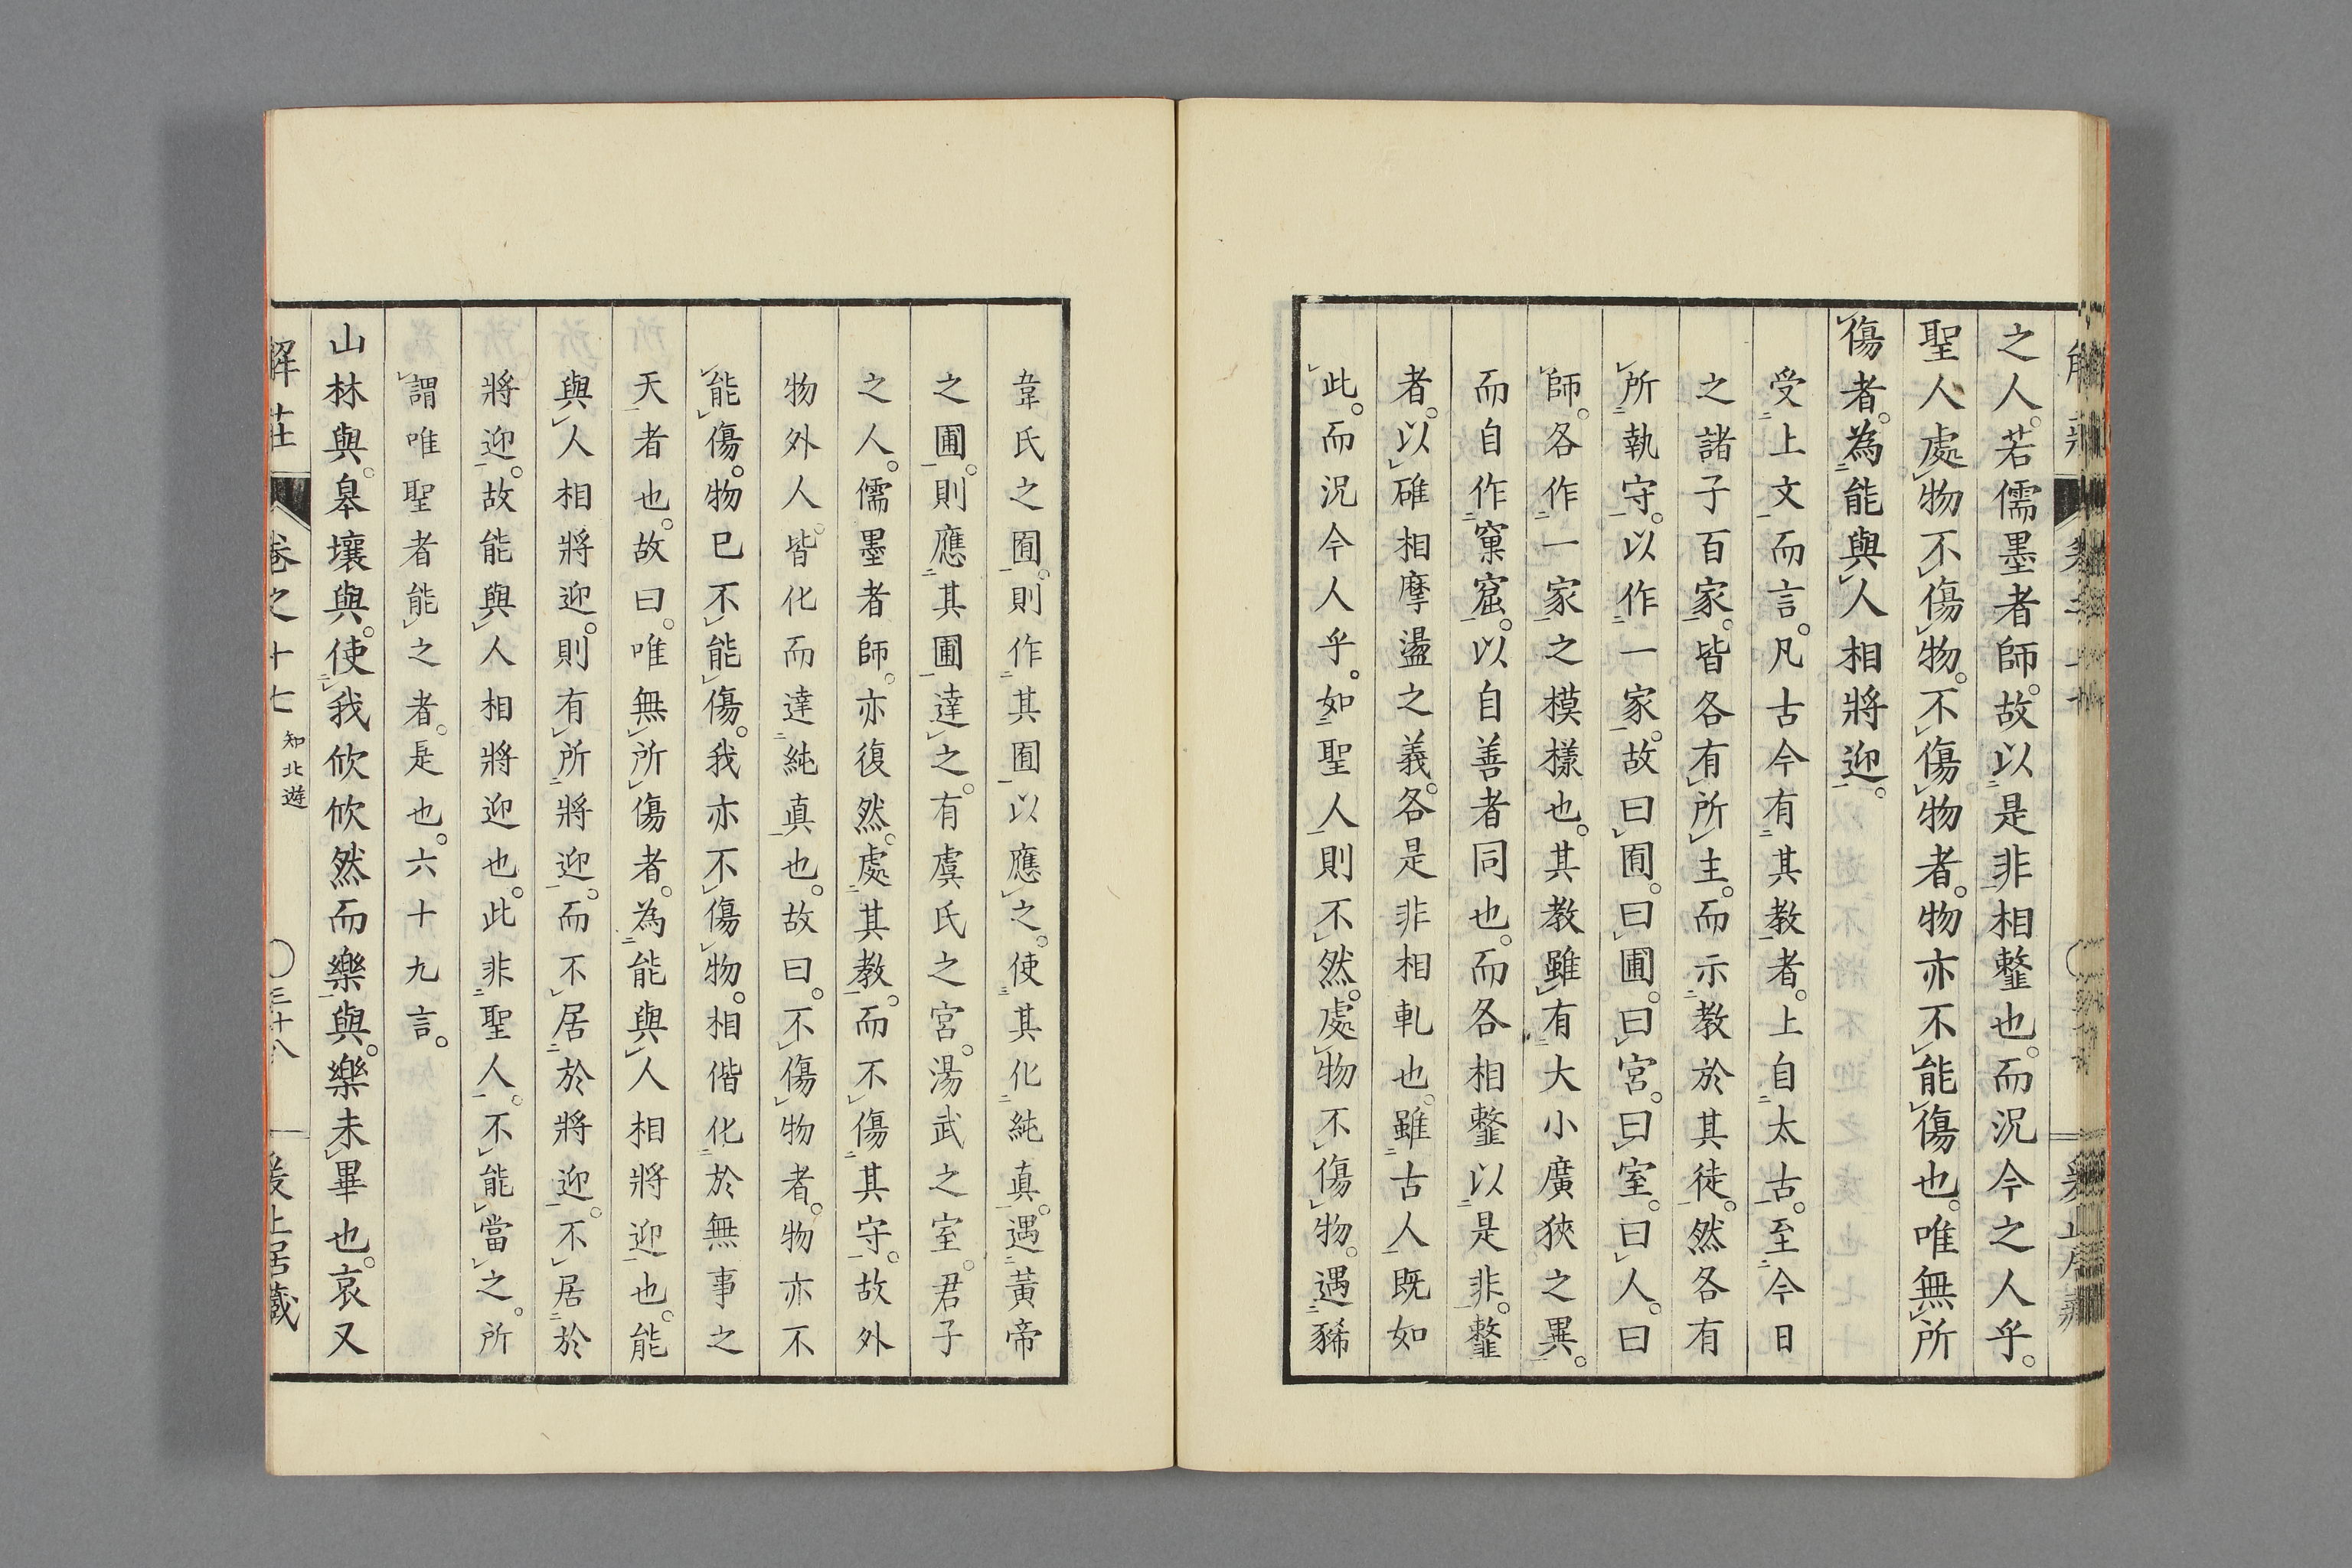 之人。若儒墨者師。故以是非相䪠也。而況今之人乎。
聖人處物不傷物。不傷物者。物亦不能傷也。唯無所
傷者。為能與人相將迎。
受上文而言。凡古今有其教者。上自太古。至今日
之諸子百家。皆各有所主。而示教於其徒。然各有
所執守。以作一家。故曰囿。曰圃。曰宮。曰室。曰人。曰
師。各作一家之模樣也。其教雖有大小廣狹之異。
而自作窠窟。以自善者同也。而各相䪠以是非。䪠
者。以碓相摩盪之義。各是非相軋也。雖古人既如
此。而況今人乎。如聖人則不然。處物不傷物。遇豨
韋氏之囿。則作其囿以應之。使其化純真。遇黃帝
之圃。則應其圃達之。有虞氏之宮。湯武之室。君子
之人。儒墨者師。亦復然。處其教。而不傷其守。故外
物外人。皆化而達純真也。故曰。不傷物者。物亦不
能傷。物已不能傷。我亦不傷物。相偕化於無事之
天者也。故曰。唯無所傷者。為能與人相將迎也。能
與人相將迎。則有所將迎。而不居於將迎。不居於
將迎。故能與人相將迎也。此非聖人。不能當之。所
謂唯聖者能之者。是也。六十九言。
山林與。皋壤與。使我欣欣然而樂與。樂未畢也。哀又
解莊 卷之十七 知北遊 三十八